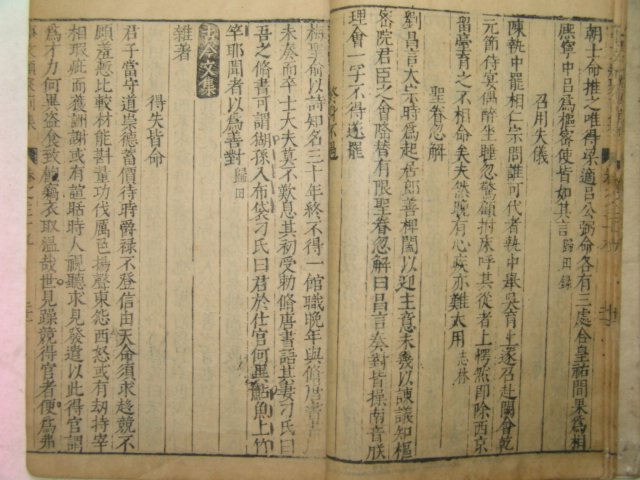 朝士俞推之唯得梁適呂公弼命各有三處合皇祐間果為相
熈寧中呂為樞密使皆如其言歸田錄
召用失儀
陳執中罷相仁宗問誰可代者執中舉吳育上遂召赴闕會乾
元節侍宴偶醉坐睡忽驚顧拊床呼其從者上愕然即除西京
留臺育之不相命矣夫然晚有心疾亦難大用志林
聖眷忽解
劉昌言太宗時為起居郎善捭闔以迎主意未幾以諫議知樞
密院君臣之會隆替有限聖眷忽解曰昌言奏對皆操南音朕
理會一字不得遂罷
終身不遇
梅聖俞以詩知名三十年終不得一館職晚年與脩唐書書
未奏而卒士大夫莫不歎息其初受勅脩唐書語其妻刁氏曰
吾之脩書可謂猢孫入布袋刁氏曰君於仕宦何異鮎魚上竹
竿耶聞者以為善對歸田
古今文集
雜著
得失皆命
君子當守道崇德蓄價待時爵禄不登信由天命須求趍競不
顧羞慙比較材能斟量功伐厲色揚聲東怨西怒或有劫持宰
相瑕疵而獲酬謝或有諠聒時人視聽求見發遣以此得官謂
為才力何異盗食致飽竊衣取溫哉世見躁競得官者便為弗